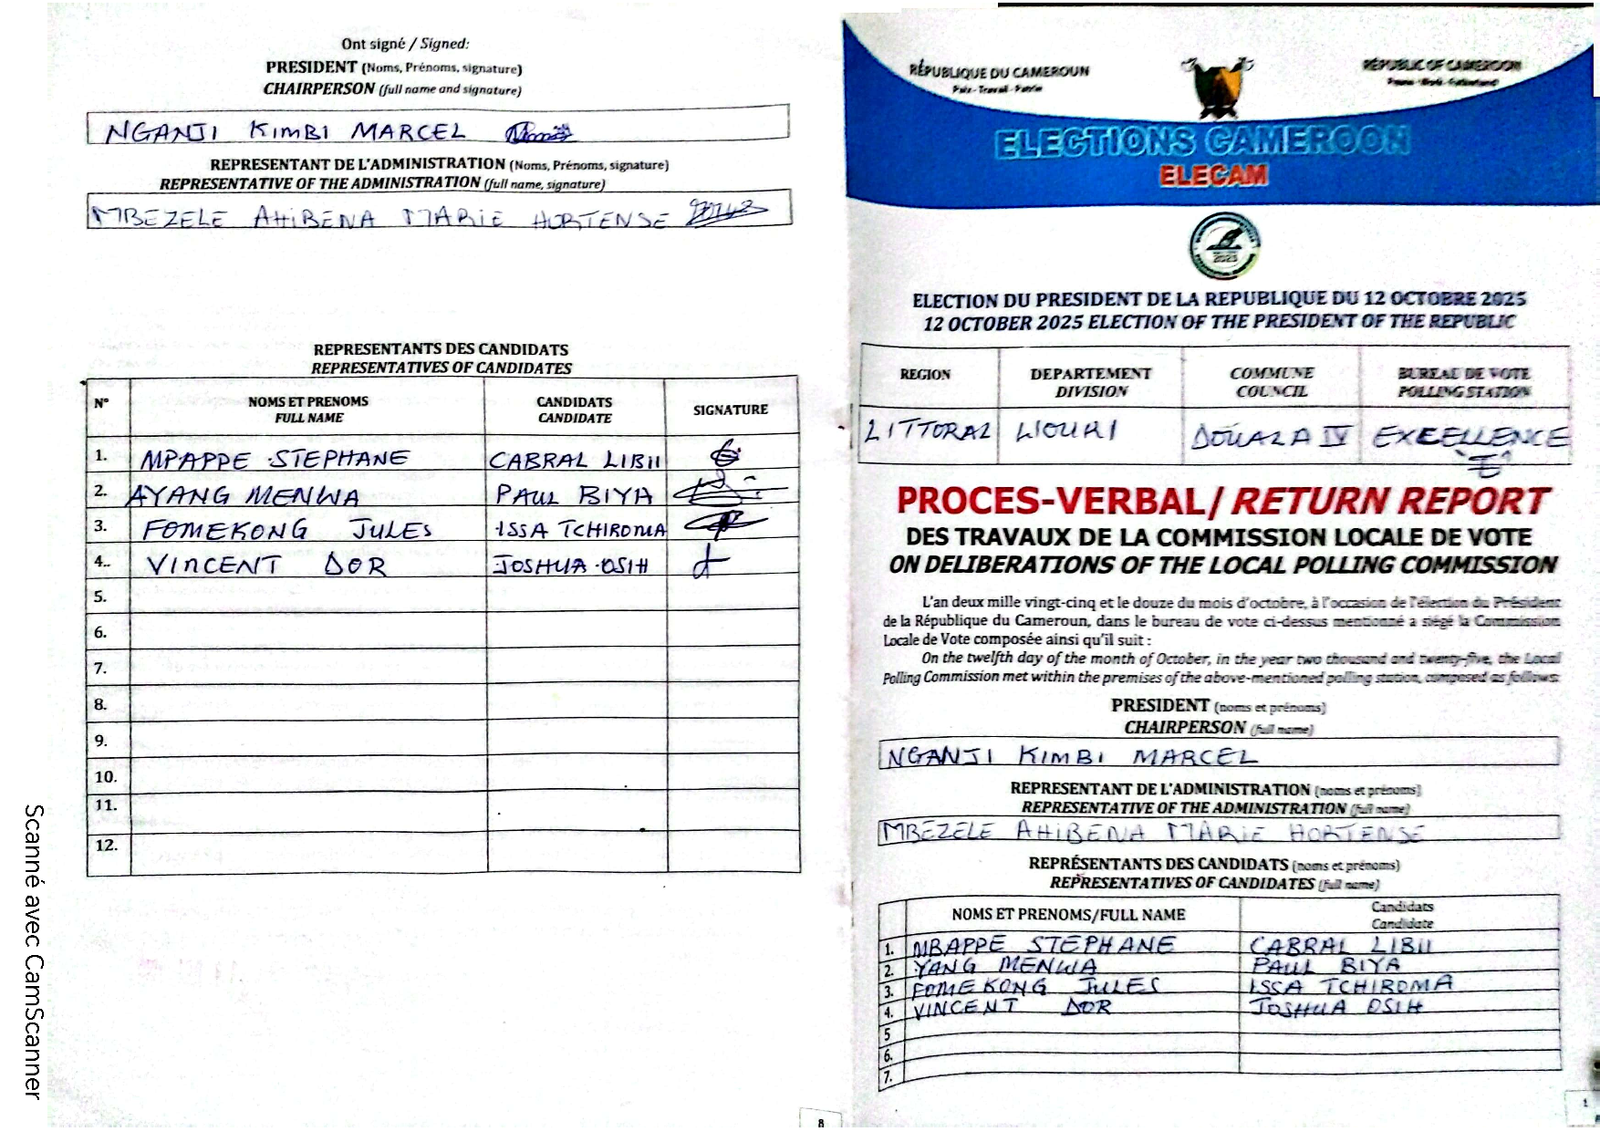 Ont signé / Signed:
PRESIDENT (Noms, Prénoms, signature)
CHAIRPERSON (full name and signature)
NGANJI KIMBI MARCEL
REPRESENTANT DE L'ADMINISTRATION (Noms, Prénoms, signature)
REPRESENTATIVE OF THE ADMINISTRATION (full name, signature)
MBEZELE AHIBENA MARIE HORTENSE
REPRESENTANTS DES CANDIDATS
REPRESENTATIVES OF CANDIDATES
N° NOMS ET PRENOMS CANDIDATS SIGNATURE
FULL NAME CANDIDATE
1. MPAPPE STEPHANE CABRAL LIBII
2. AYANG MENWA PAUL BIYA
3. FOMEKONG JULES ISSA TCHIROMA
4.. VINCENT DOR JOSHUA OSIH
5.
6.
7.
8.
9.
10.
11.
12.
8
Scanné avec CamScanner
RÉPUBLIQUE DU CAMEROUN
Paix - Travail - Patrie
REPUBLIC OF CAMEROON
Peace - Work - Fatherland
ELECTIONS CAMEROON
ELECAM
2025
ELECTION DU PRESIDENT DE LA REPUBLIQUE DU 12 OCTOBRE 2025
12 OCTOBER 2025 ELECTION OF THE PRESIDENT OF THE REPUBLIC
REGION DEPARTEMENT COMMUNE BUREAU DE VOTE
DIVISION COUNCIL POLLING STATION
LITTORAL WOURI DOUALA IV EXCELLENCE
"E"
PROCES-VERBAL/ RETURN REPORT
DES TRAVAUX DE LA COMMISSION LOCALE DE VOTE
ON DELIBERATIONS OF THE LOCAL POLLING COMMISSION
L'an deux mille vingt-cinq et le douze du mois d'octobre, à l'occasion de l'élection du Président
de la République du Cameroun, dans le bureau de vote ci-dessus mentionné a siégé la Commission
Locale de Vote composée ainsi qu'il suit :
On the twelfth day of the month of October, in the year two thousand and twenty-five, the Local
Polling Commission met within the premises of the above-mentioned polling station, composed as follows:
PRESIDENT (noms et prénoms)
CHAIRPERSON (full name)
NGANJI KIMBI MARCEL
REPRESENTANT DE L'ADMINISTRATION (noms et prénoms)
REPRESENTATIVE OF THE ADMINISTRATION (full name)
MBEZELE AHIBENA MARIE HORTENSE
REPRÉSENTANTS DES CANDIDATS (noms et prénoms)
REPRESENTATIVES OF CANDIDATES (full name)
NOMS ET PRENOMS/FULL NAME Candidats
Candidate
1. MBAPPE STEPHANE CABRAL LIBII
2. YANG MENWA PAUL BIYA
3. FOMEKONG JULES ISSA TCHIROMA
4. VINCENT DOR JOSHUA OSIH
5
6.
7.
1